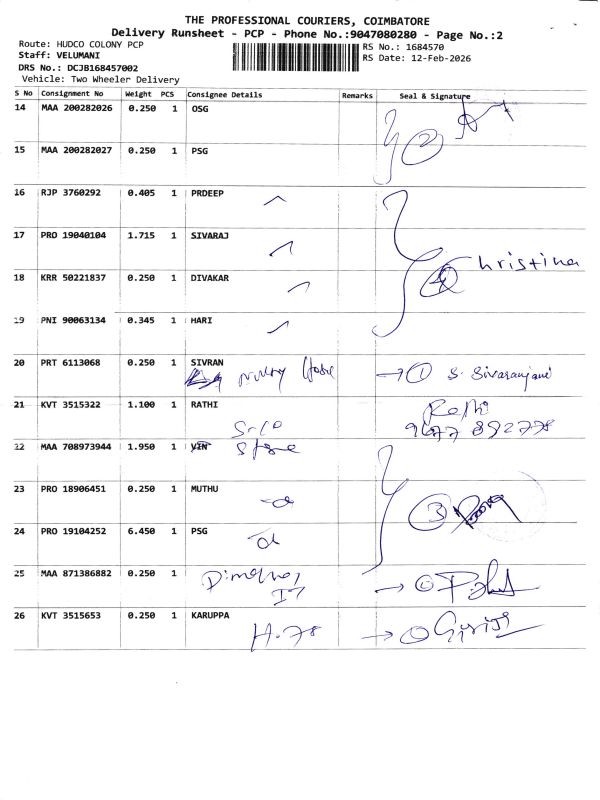 THE PROFESSIONAL COURIERS, COIMBATORE
Delivery Runsheet - PCP - Phone No.:9047080280 - Page No.:2
Route: HUDCO COLONY PCP
RS No.: 1684570
Staff: VELUMANI
RS Date: 12-Feb-2026
DRS No.: DCJB168457002
Vehicle: Two Wheeler Delivery
S No Consignment No Weight PCS Consignee Details Remarks Seal & Signature
14 MAA 200282026 0.250 1 OSG
2
15 MAA 200282027 0.250 1 PSG
16 RJP 3760292 0.405 1 PRDEEP
17 PRO 19040104 1.715 1 SIVARAJ
4 Christina
18 KRR 50221837 0.250 1 DIVAKAR
19 PNI 90063134 0.345 1 HARI
20 PRT 6113068 0.250 1 SIVRAN
→ 1 S. Sivaranjani
21 KVT 3515322 1.100 1 RATHI
Rathi
22 MAA 708973944 1.950 1 VIN
Store
23 PRO 18906451 0.250 1 MUTHU
3
24 PRO 19104252 6.450 1 PSG
25 MAA 871386882 0.250 1
IT → 1
26 KVT 3515653 0.250 1 KARUPPA
H-78 →